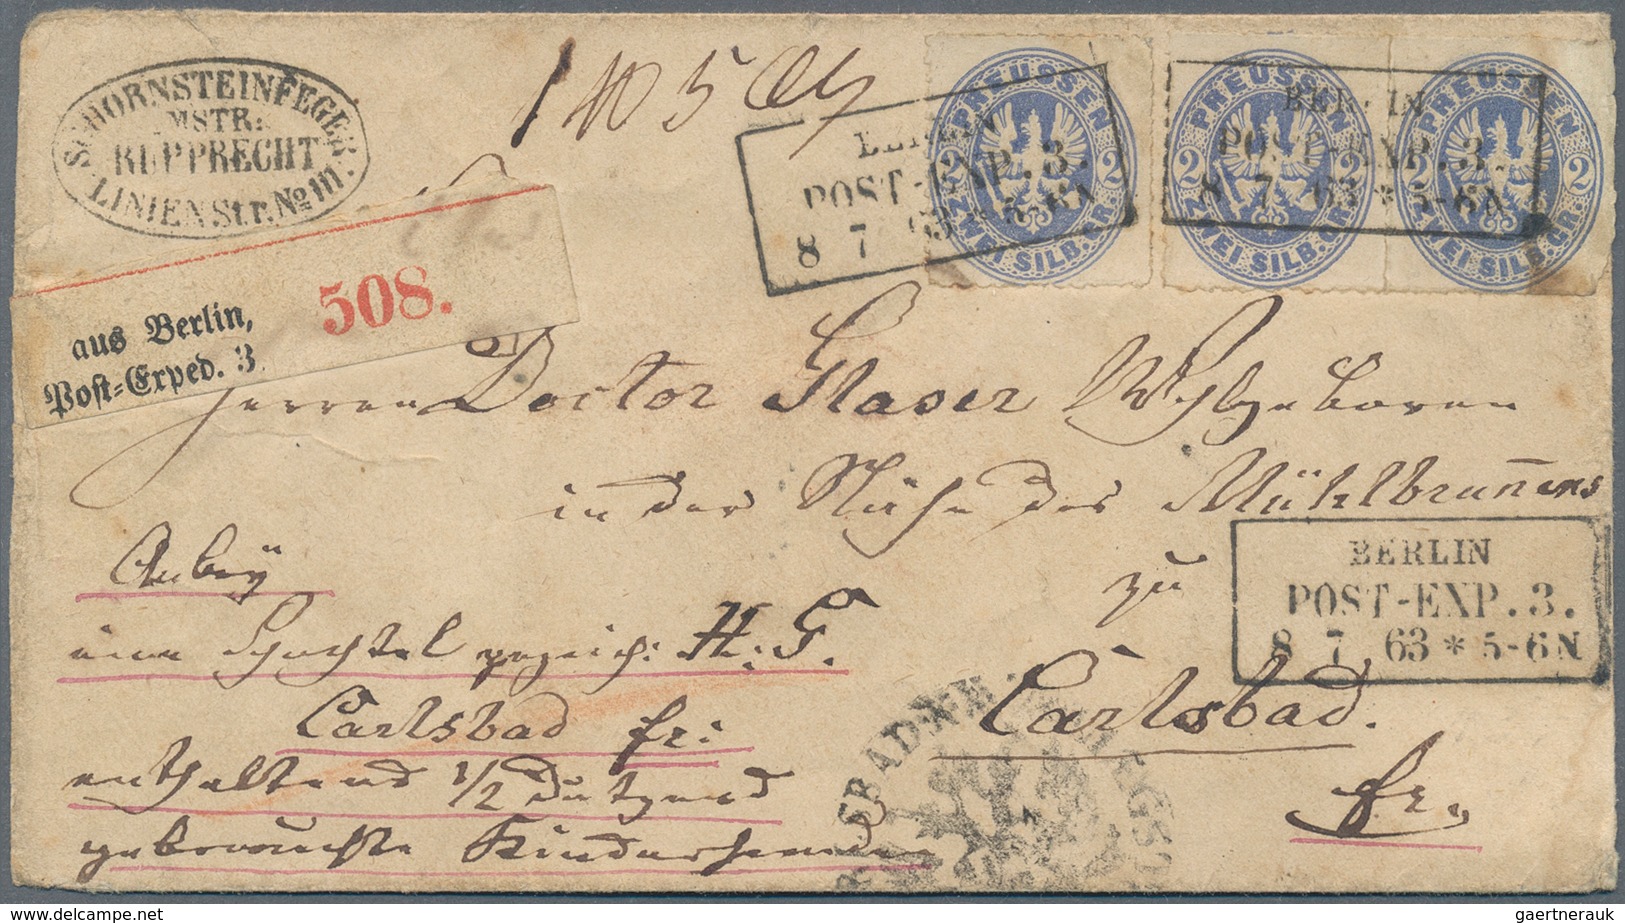 SCHORNSTEINFEGER
MSTR:
RUPPRECHT
LINIEN Str. No 111.
1 ℔ 5
PREUSSEN
2 2
ZWEI SILB. GR.
PREUSSEN
2 2
ZWEI SILB. GR.
PREUSSEN
2 2
ZWEI SILB. GR.
BERLIN
POST-EXP. 3.
8 7 63 * 5-6 N
BERLIN
POST-EXP. 3.
8 7 63 * 5-6 N
aus Berlin,
Post-Exped. 3.
508.
Herren Doctor Glaser Wohlgeboren
in der Nähe des Mühlbrunnens
zu
Carlsbad.
fr.
BERLIN
POST-EXP. 3.
8 7 63 * 5-6 N
Anbey
eine Schachtel gezeich: H: G.
Carlsbad fr:
enthaltend 1/2 Dutzend
gebrauchte Kinderhemden
gaertnerauk
www.delcampe.net